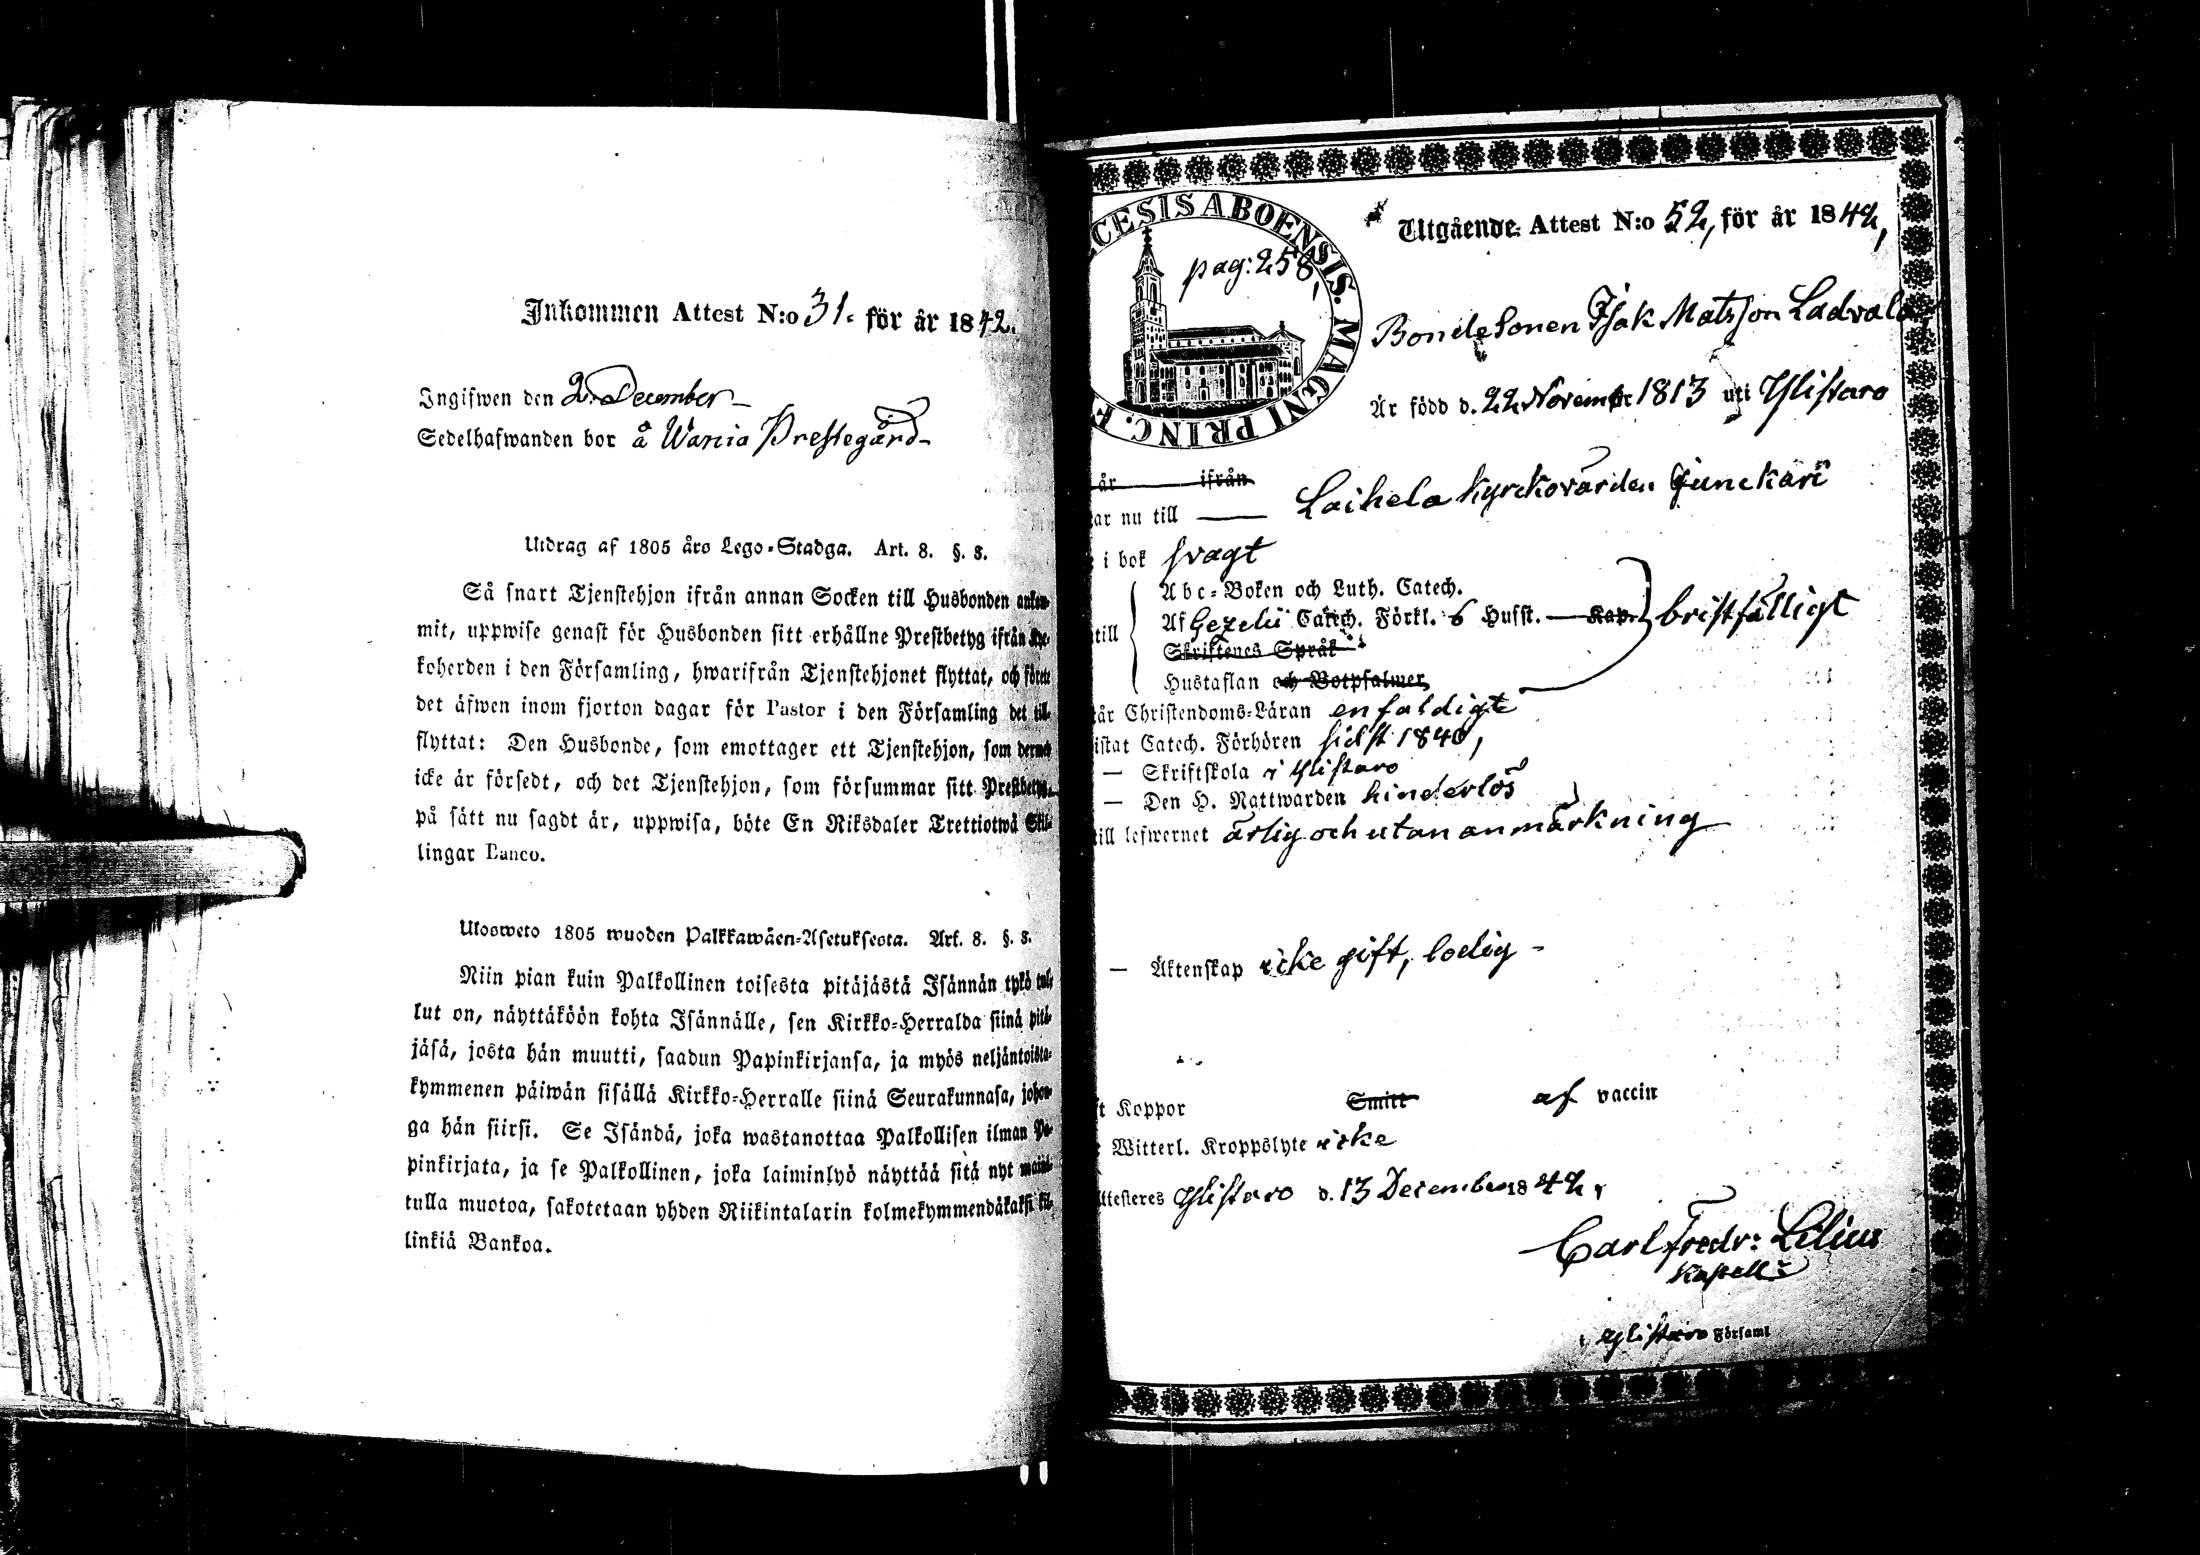 Inkommen Attest N:o 31. för år 1842.
Ingifwen den 2. December
Sedelhafwanden bor å Wania Prestegård
Utdrag af 1805 års Lego-Stadga. Art. 8. §. 8.
Så snart Tjenstehjon ifrån annan Socken till Husbonden ankom-
mit, uppwise genast för Husbonden sitt erhållne Prestbetyg ifrån Kyr-
koherden i den Församling, hwarifrån Tjenstehjonet flyttat, och förete
det äfwen inom fjorton dagar för Pastor i den Församling det till-
flyttat: Den Husbonde, som emottager ett Tjenstehjon, som dermed
icke är försedt, och det Tjenstehjon, som försummar sitt Prestbetyg,
på sätt nu sagdt är, uppwisa, böte En Riksdaler Trettiotwå Skil-
lingar Banco.
Ulosweto 1805 wuoden Palkkawäen-Asetuksesta. Art. 8. §. 8.
Niin pian kuin Palkollinen toisesta pitäjästä Isännän tykö tul-
lut on, näyttäköön kohta Isännälle, sen Kirkko-Herralda siinä pitä-
jäsä, josta hän muutti, saadun Papinkirjansa, ja myös neljäntoista-
kymmenen päiwän sisällä Kirkko-Herralle siinä Seurakunnasa, johon-
ga hän siirsi. Se Isändä, joka wastanottaa Palkollisen ilman Pa-
pinkirjata, ja se Palkollinen, joka laiminlyö näyttää sitä nyt maini-
tulla muotoa, sakotetaan yhden Riikintalarin kolmekymmendäkaksi kil-
linkiä Bankoa.
CESIS ABOENSIS. MAGNI PRINC. F
pag: 258,
Utgående Attest N:o 52, för år 1842,
Bondesonen Isak Matsson Ladvala
Är född d. 22 Novembr 1813 uti Ylistaro
år ifrån
ar nu till Laihela Kyrckovärden Junckari
i bok svagt
till
Abc-Boken och Luth. Catech.
Af Gezelii Catech. Förkl. 6 Hufst. Kap. bristfälligt
Skriftenes Språk
Hustaflan och Botpsalmer
år Christendoms-Läran enfaldigt
istat Catech. Förhören sidst 1840,
— Skriftskola i Ylistaro
— Den H. Nattwarden hinderlös
till lefwernet ärlig och utan anmärkning
— Äktenskap icke gift, ledig
t Koppor Smitt af vaccin
Witterl. Kroppslyte icke
ttesteres Ylistaro d. 13 December 1842,
Carl Fredr: Lilius
Kapell:
i Ylistaro Församl